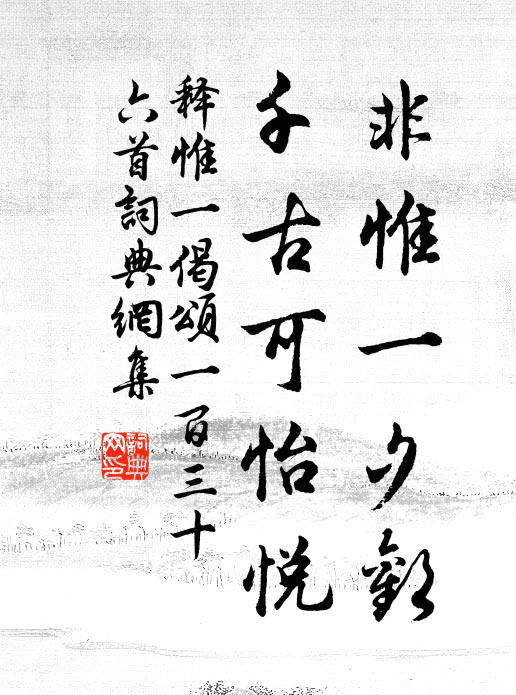 非惟一夕歡
千古可怡悅
释惟一偈頌一百三十
六首詞典網集
詞典
网印